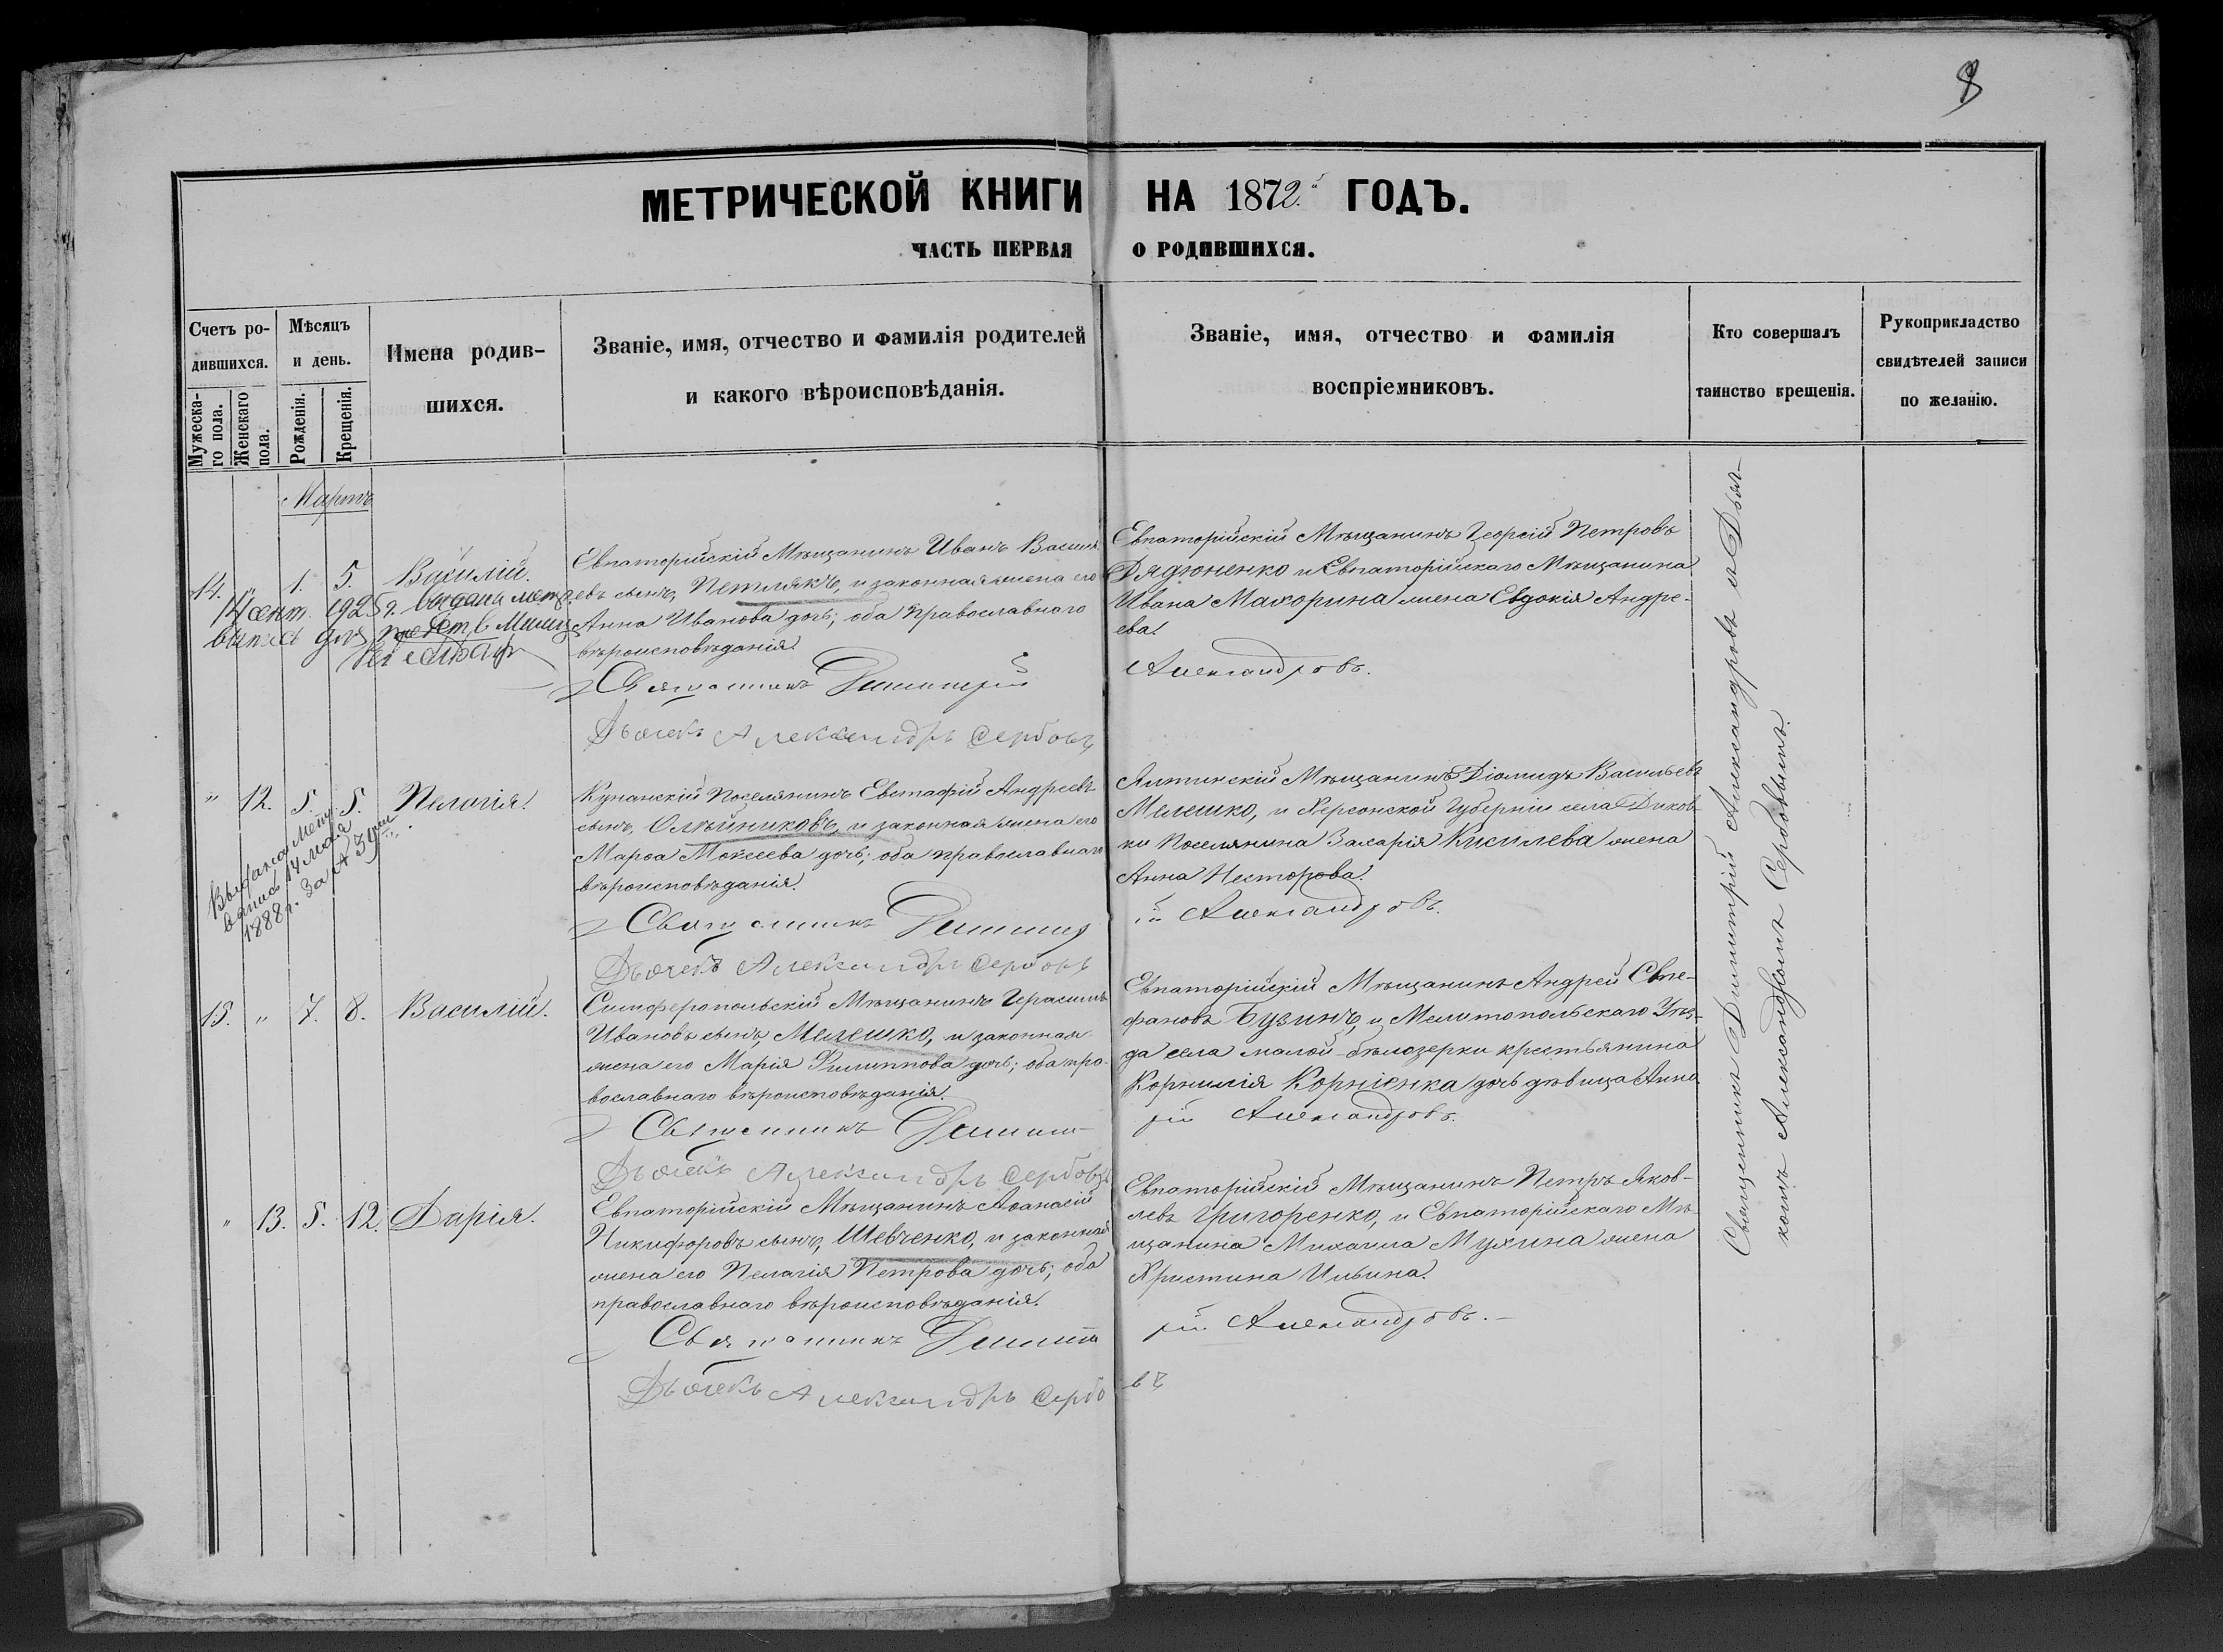 8
МЕТРИЧЕСКОЙ КНИГИ НА 1872й ГОДЪ.
ЧАСТЬ ПЕРВАЯ О РОДИВШИХСЯ.
Счетъ ро-
дившихся.
Мужеска-
го пола.
Женскаго
пола.
Мѣсяцъ
и день.
Рожденія.
Крещенія.
Имена родив-
шихся.
Званіе, имя, отчество и фамилія родителей
и какого вѣроисповѣданія.
Званіе, имя, отчество и фамилія
воспріемниковъ.
Кто совершалъ
таинство крещенія.
Рукоприкладство
свидѣтелей записи
по желанію.
Мартъ
14. " 1. 5. Василій.
14 сент. 1925 г. выдана метр.
выпись для предст. в Милиц.
Евпаторійскій Мѣщанинъ Иванъ Василь-
евъ сынъ, Петлякъ, и законная жена его
Анна Иванова дочь; оба православнаго
вѣроисповѣданія.
Евпаторійскій Мѣщанинъ Георгій Петровъ
Дядюненко и Евпаторійскаго Мѣщанина
Ивана Махорина жена Евдокія Андре-
ева.
Священникъ Димитрій Александровъ.
Дьячекъ Александръ Сербовъ
" 12. 5. 5. Пелагія.
Выдана метр.
выпись 14 мая
1888 г. за № 30
Купанскій Поселянинъ Евстафій Андреевъ
сынъ, Олѣйниковъ, и законная жена его
Марѳа Моѵсеева дочь; оба православнаго
вѣроисповѣданія.
Ялтинскій Мѣщанинъ Діомидъ Васильевъ
Мелешко, и Херсонской Губерніи села Диков-
ки Поселянина Захарія Кисилева жена
Анна Нестерова.
Священникъ Димитрій Александровъ.
Дьячекъ Александръ Сербовъ
15. " 7. 8. Василій.
Симферопольскій Мѣщанинъ Герасимъ
Ивановъ сынъ, Мелешко, и законная
жена его Марія Филиппова дочь; оба пра-
вославнаго вѣроисповѣданія.
Евпаторійскій Мѣщанинъ Андрей Сте-
фановъ Бузинъ, и Мелитопольскаго Уѣз-
да села малой-бѣлозерки крестьянина
Корнилія Корніенка дочь дѣвица Анна.
Священникъ Димитрій Александровъ.
Дьячекъ Александръ Сербовъ
" 13. 5. 12. Дарія.
Евпаторійскій Мѣщанинъ Аѳанасій
Никифоровъ сынъ, Шевченко, и законная
жена его Пелагія Петрова дочь; оба
православнаго вѣроисповѣданія.
Евпаторійскій Мѣщанинъ Петръ Яков-
левъ Григоренко, и Евпаторійскаго Мѣ-
щанина Михаила Мухина жена
Христина Ильина.
Священникъ Димитрій Александровъ.
Дьячекъ Александръ Сербовъ
Священникъ Димитрій Александровъ съ Дьяч-
комъ Александромъ Сербовымъ.